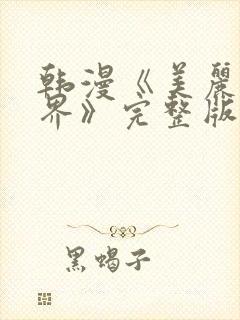 韩漫《美丽
界》完整版
黑蝎子